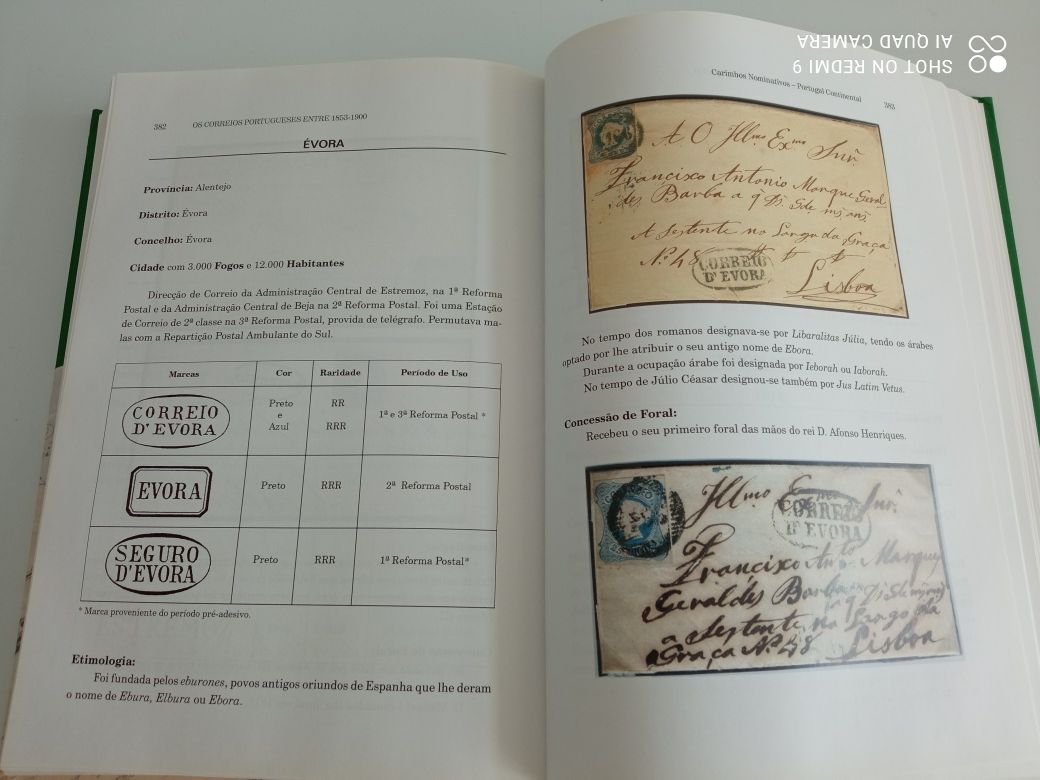 382 OS CORREIOS PORTUGUESES ENTRE 1853-1900
ÉVORA
Província: Alentejo
Distrito: Évora
Concelho: Évora
Cidade com 3.000 Fogos e 12.000 Habitantes
Direcção de Correio da Administração Central de Estremoz, na 1ª Reforma
Postal e da Administração Central de Beja na 2ª Reforma Postal. Foi uma Estação
de Correio de 2ª classe na 3ª Reforma Postal, provida de telégrafo. Permutava ma-
las com a Repartição Postal Ambulante do Sul.
Marcas Cor Raridade Período de Uso
CORREIO
D'EVORA
Preto
e
Azul
RR
RRR
1ª e 3ª Reforma Postal *
EVORA Preto RRR 2ª Reforma Postal
SEGURO
D'EVORA
Preto RRR 1ª Reforma Postal*
* Marca proveniente do período pré-adesivo.
Etimologia:
Foi fundada pelos eburones, povos antigos oriundos de Espanha que lhe deram
o nome de Ebura, Elbura ou Ebora.
SHOT ON REDMI 9
AI QUAD CAMERA
Carimbos Nominativos – Portugal Continental 383
A O Illmo Exmo Snr.
Francisco Antonio Marque Geral
des Barba a q Ds. Gde
A Sertente no Largo da Graça
N.º 48
CORREIO
D'EVORA
Lisboa
No tempo dos romanos designava-se por Libaralitas Júlia, tendo os árabes
optado por lhe atribuir o seu antigo nome de Ebora.
Durante a ocupação árabe foi designada por Ieborah ou Iaborah.
No tempo de Júlio Céasar designou-se também por Jus Latim Vetus.
Concessão de Foral:
Recebeu o seu primeiro foral das mãos do rei D. Afonso Henriques.
Illmo Exmo Snr.
CORREIO
D'EVORA
Francisco Anto Marque
Geraldes Barba
a q Ds. Gde
a Sertente no Largo da
Graça N.º 48 Lisboa